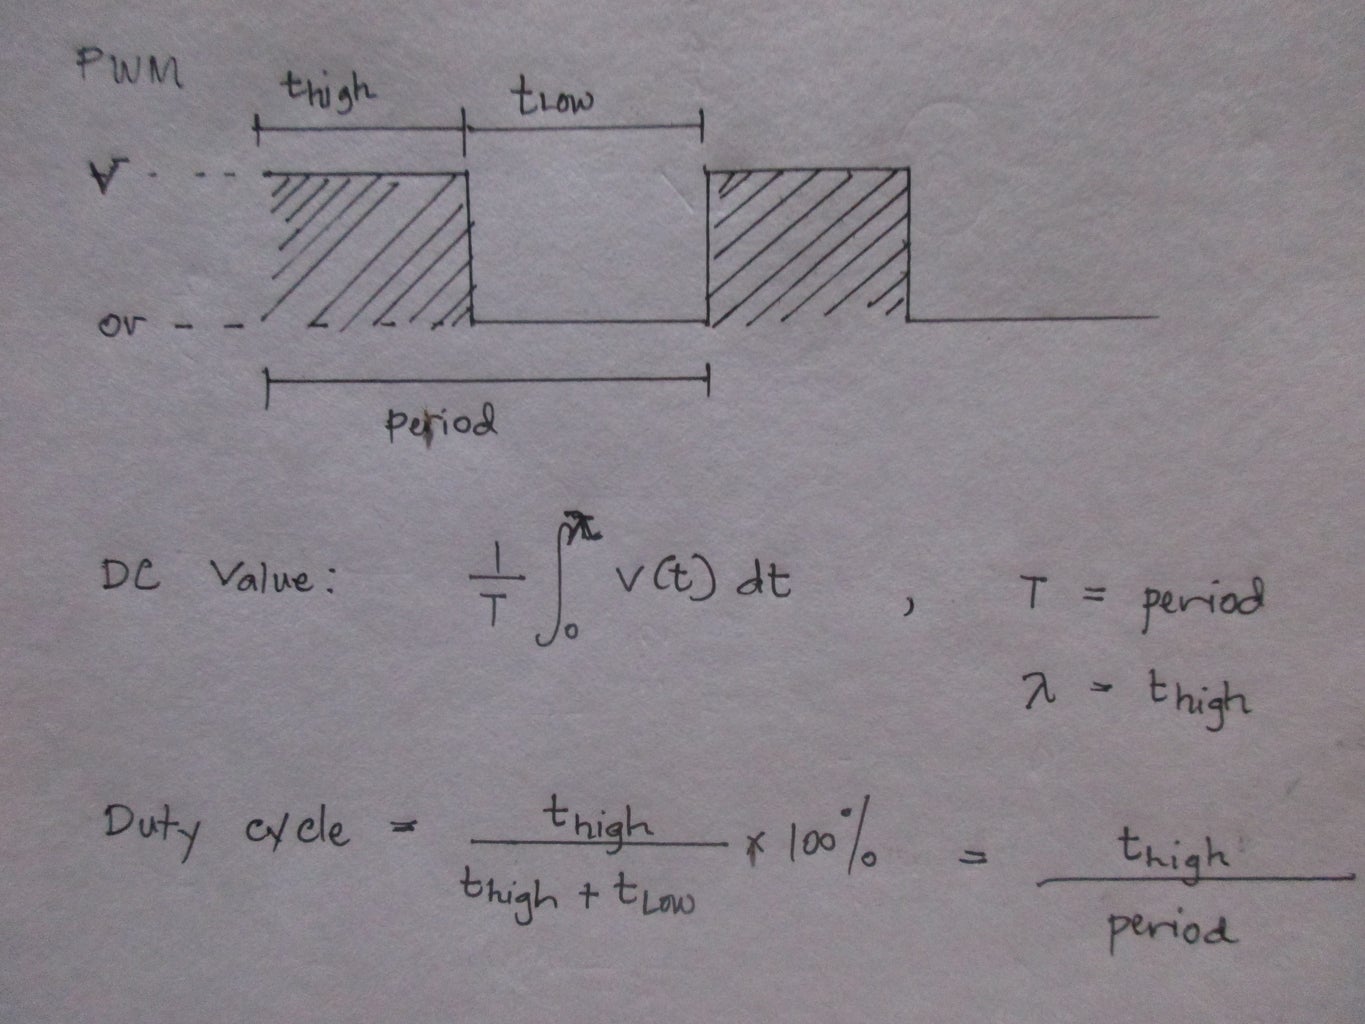 PWM
thigh tLow
V
0V
period
DC Value: 1/T ∫₀^λ v(t) dt , T = period
λ = thigh
Duty cycle = thigh / thigh + tLow × 100% = thigh / period